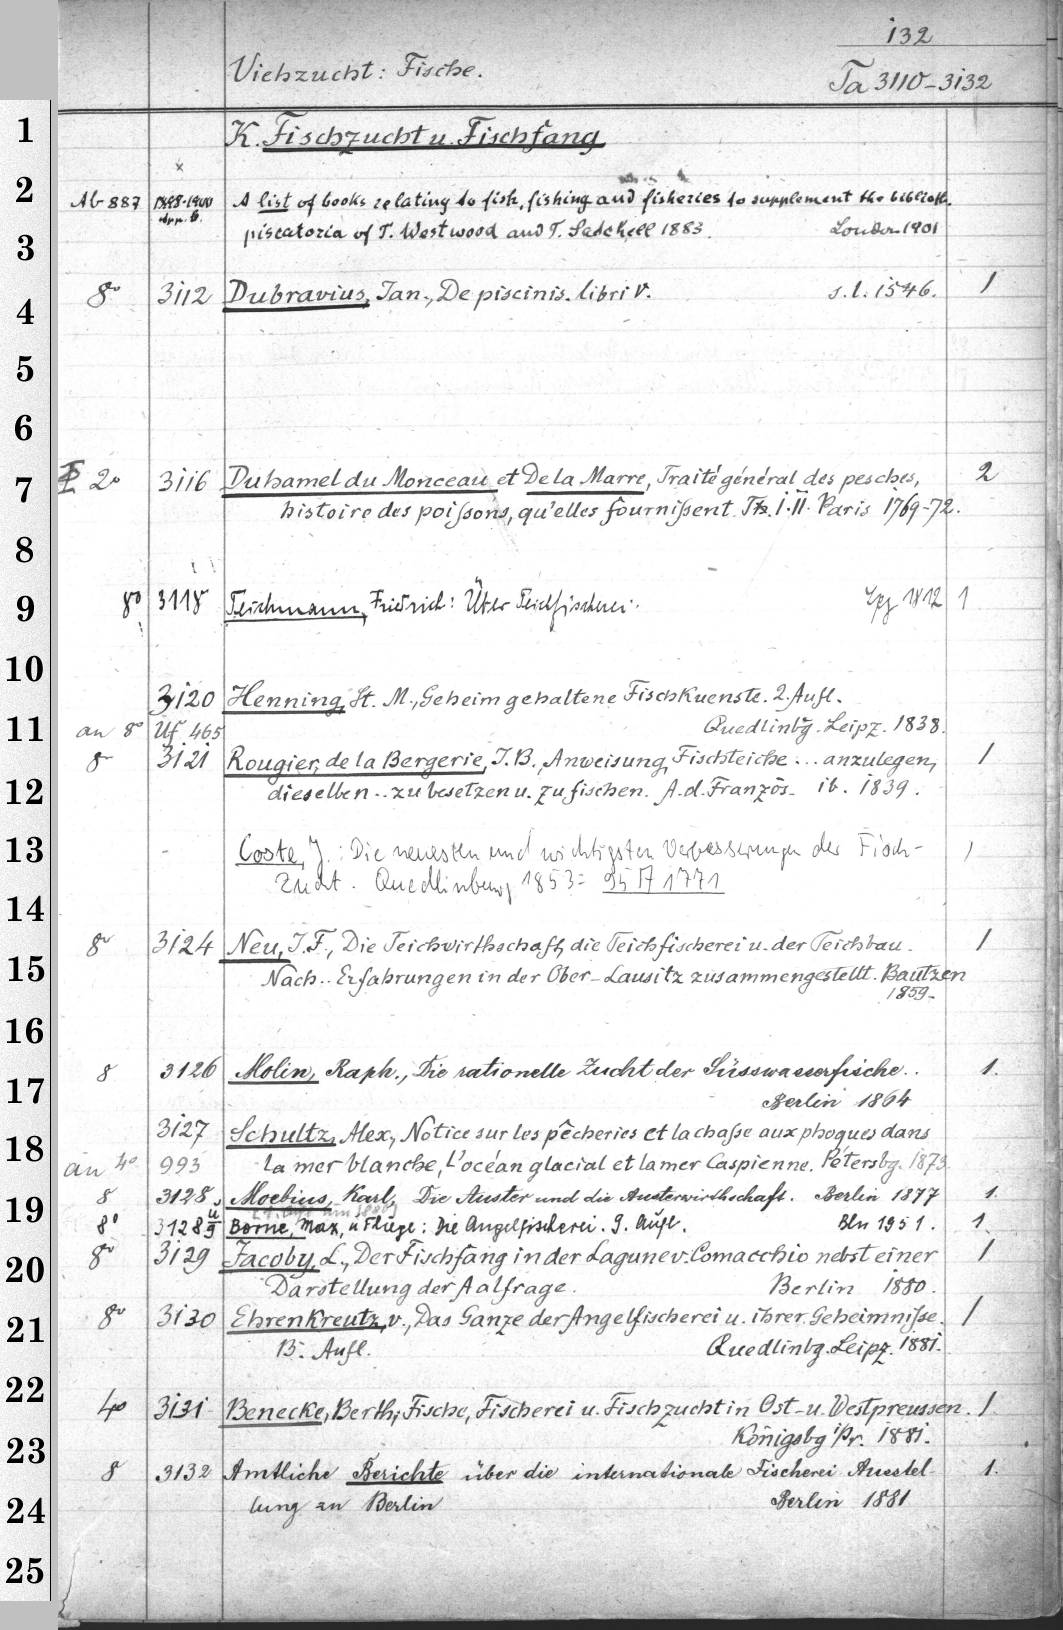 132
Viehzucht: Fische. Ta 3110-3132
1 K. Fischzucht u. Fischfang
2 Ab 887 1898-1900 App. 6. A list of books relating to fish, fishing and fisheries to supplement the biblioth.
3 piscatoria of T. Westwood and T. Satchell 1883. London 1901
4 8° 3112 Dubravius, Jan., De piscinis. libri V. s. l. 1546. 1
5
6
7 2° 3116 Duhamel du Monceau et De la Marre, Traité général des pesches, 2
histoire des poißons, qu'elles fournißent. I. II. Paris 1769-72.
8
9 8° 3118 Teichmann, Friedrich: Über Teichfischerei. Lpz 1812 1
10
3120 Henning, St. M., Geheim gehaltene Fischkuenste. 2. Aufl.
11 an 8° Uf 465 Quedlinbg. Leipz. 1838.
8° 3121 Rougier, de la Bergerie, J. B., Anweisung, Fischteiche ... anzulegen, 1
12 dieselben .. zu besetzen u. zu fischen. A. d. Französ. ib. 1839.
13 - Coste, J.: Die neuesten und wichtigsten Verbesserungen der Fisch- 1
zucht. Quedlinburg 1853 = 95 A 1771
14
8° 3124 Neu, J. F., Die Teichwirthschaft, die Teichfischerei u. der Teichbau. 1
15 Nach .. Erfahrungen in der Ober-Lausitz zusammengestellt. Bautzen
1859.
16
8 3126 Molin, Raph., Die rationelle Zucht der Süsswasserfische.. 1.
17 Berlin 1864
3127 Schultz, Alex., Notice sur les pêcheries et la chaße aux phoques dans
18 an 4° 993 la mer blanche, L'océan glacial et la mer Caspienne. Pétersbg. 1873.
19 8 3128 Moebius, Karl, Die Auster und die Austerwirthschaft. Berlin 1877 1.
8° 3128 g Borne, Max, u Fliege: Die Angelfischerei. 9. Aufl. Bln 1951. 1
20 8° 3129 Jacoby, L., Der Fischfang in der Lagune v. Comacchio nebst einer 1
Darstellung der Aalfrage. Berlin 1880.
21 8° 3130 Ehrenkreutz, v., Das Ganze der Angelfischerei u. ihrer Geheimniße. 1
13. Aufl. Quedlinbg. Leipz. 1881.
22
4° 3131 Benecke, Berth., Fische, Fischerei u. Fischzucht in Ost- u. Westpreussen. 1
23 Königsbg i/Pr. 1881.
8 3132 Amtliche Berichte über die internationale Fischerei Ausstel- 1.
24 lung zu Berlin Berlin 1881
25